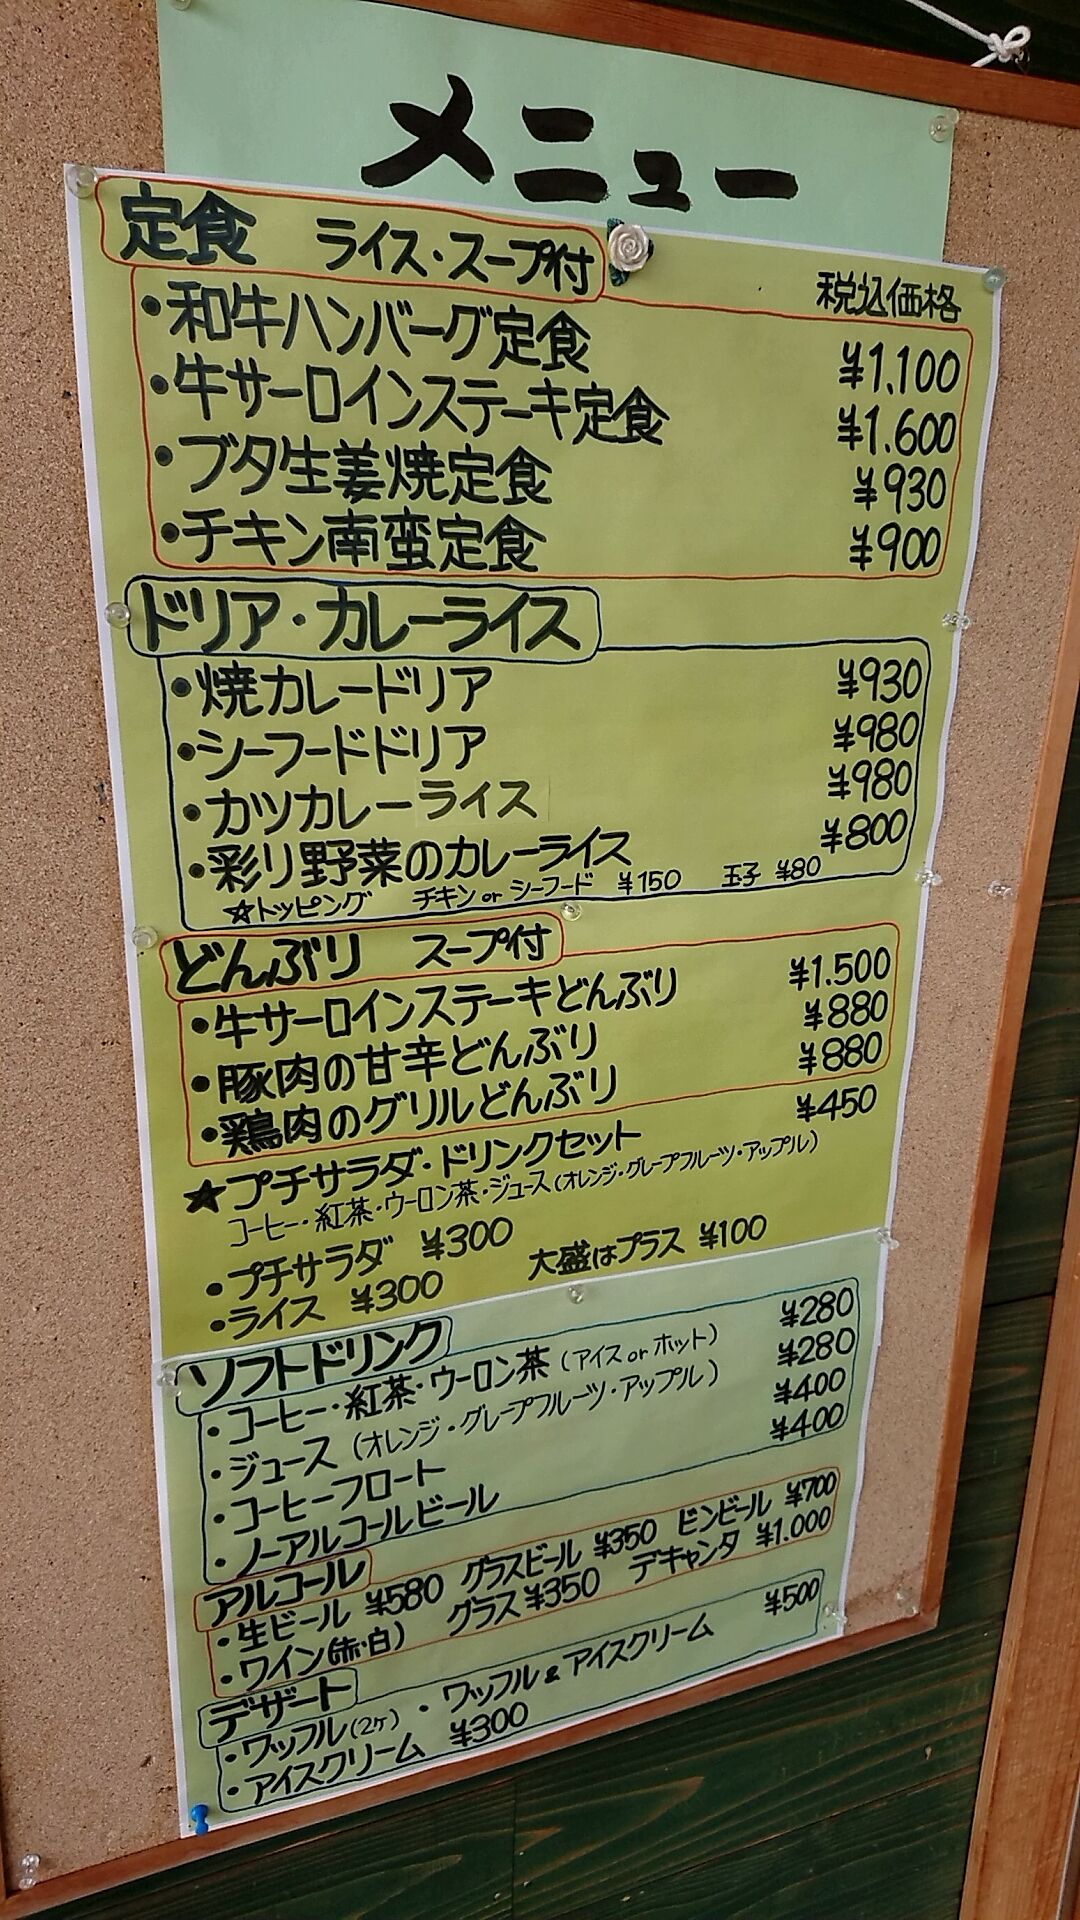 メニュー
定食 ライス・スープ付
税込価格
・和牛ハンバーグ定食 ¥1,100
・牛サーロインステーキ定食 ¥1.600
・ブタ生姜焼定食 ¥930
・チキン南蛮定食 ¥900
ドリア・カレーライス
・焼カレードリア ¥930
・シーフードドリア ¥980
・カツカレーライス ¥980
・彩り野菜のカレーライス ¥800
☆トッピング チキン or シーフード ¥150 玉子 ¥80
どんぶり スープ付
・牛サーロインステーキどんぶり ¥1.500
・豚肉の甘辛どんぶり ¥880
・鶏肉のグリルどんぶり ¥880
★プチサラダ・ドリンクセット ¥450
コーヒー・紅茶・ウーロン茶・ジュース(オレンジ・グレープフルーツ・アップル)
・プチサラダ ¥300
・ライス ¥300 大盛はプラス ¥100
ソフトドリンク
・コーヒー・紅茶・ウーロン茶 (アイス or ホット) ¥280
・ジュース (オレンジ・グレープフルーツ・アップル) ¥280
・コーヒーフロート ¥400
・ノーアルコールビール ¥400
アルコール
・生ビール ¥580 グラスビール ¥350 ビンビール ¥700
・ワイン(赤・白) グラス ¥350 デキャンタ ¥1.000
デザート
・ワッフル(2ヶ) ・ワッフル & アイスクリーム ¥500
・アイスクリーム ¥300